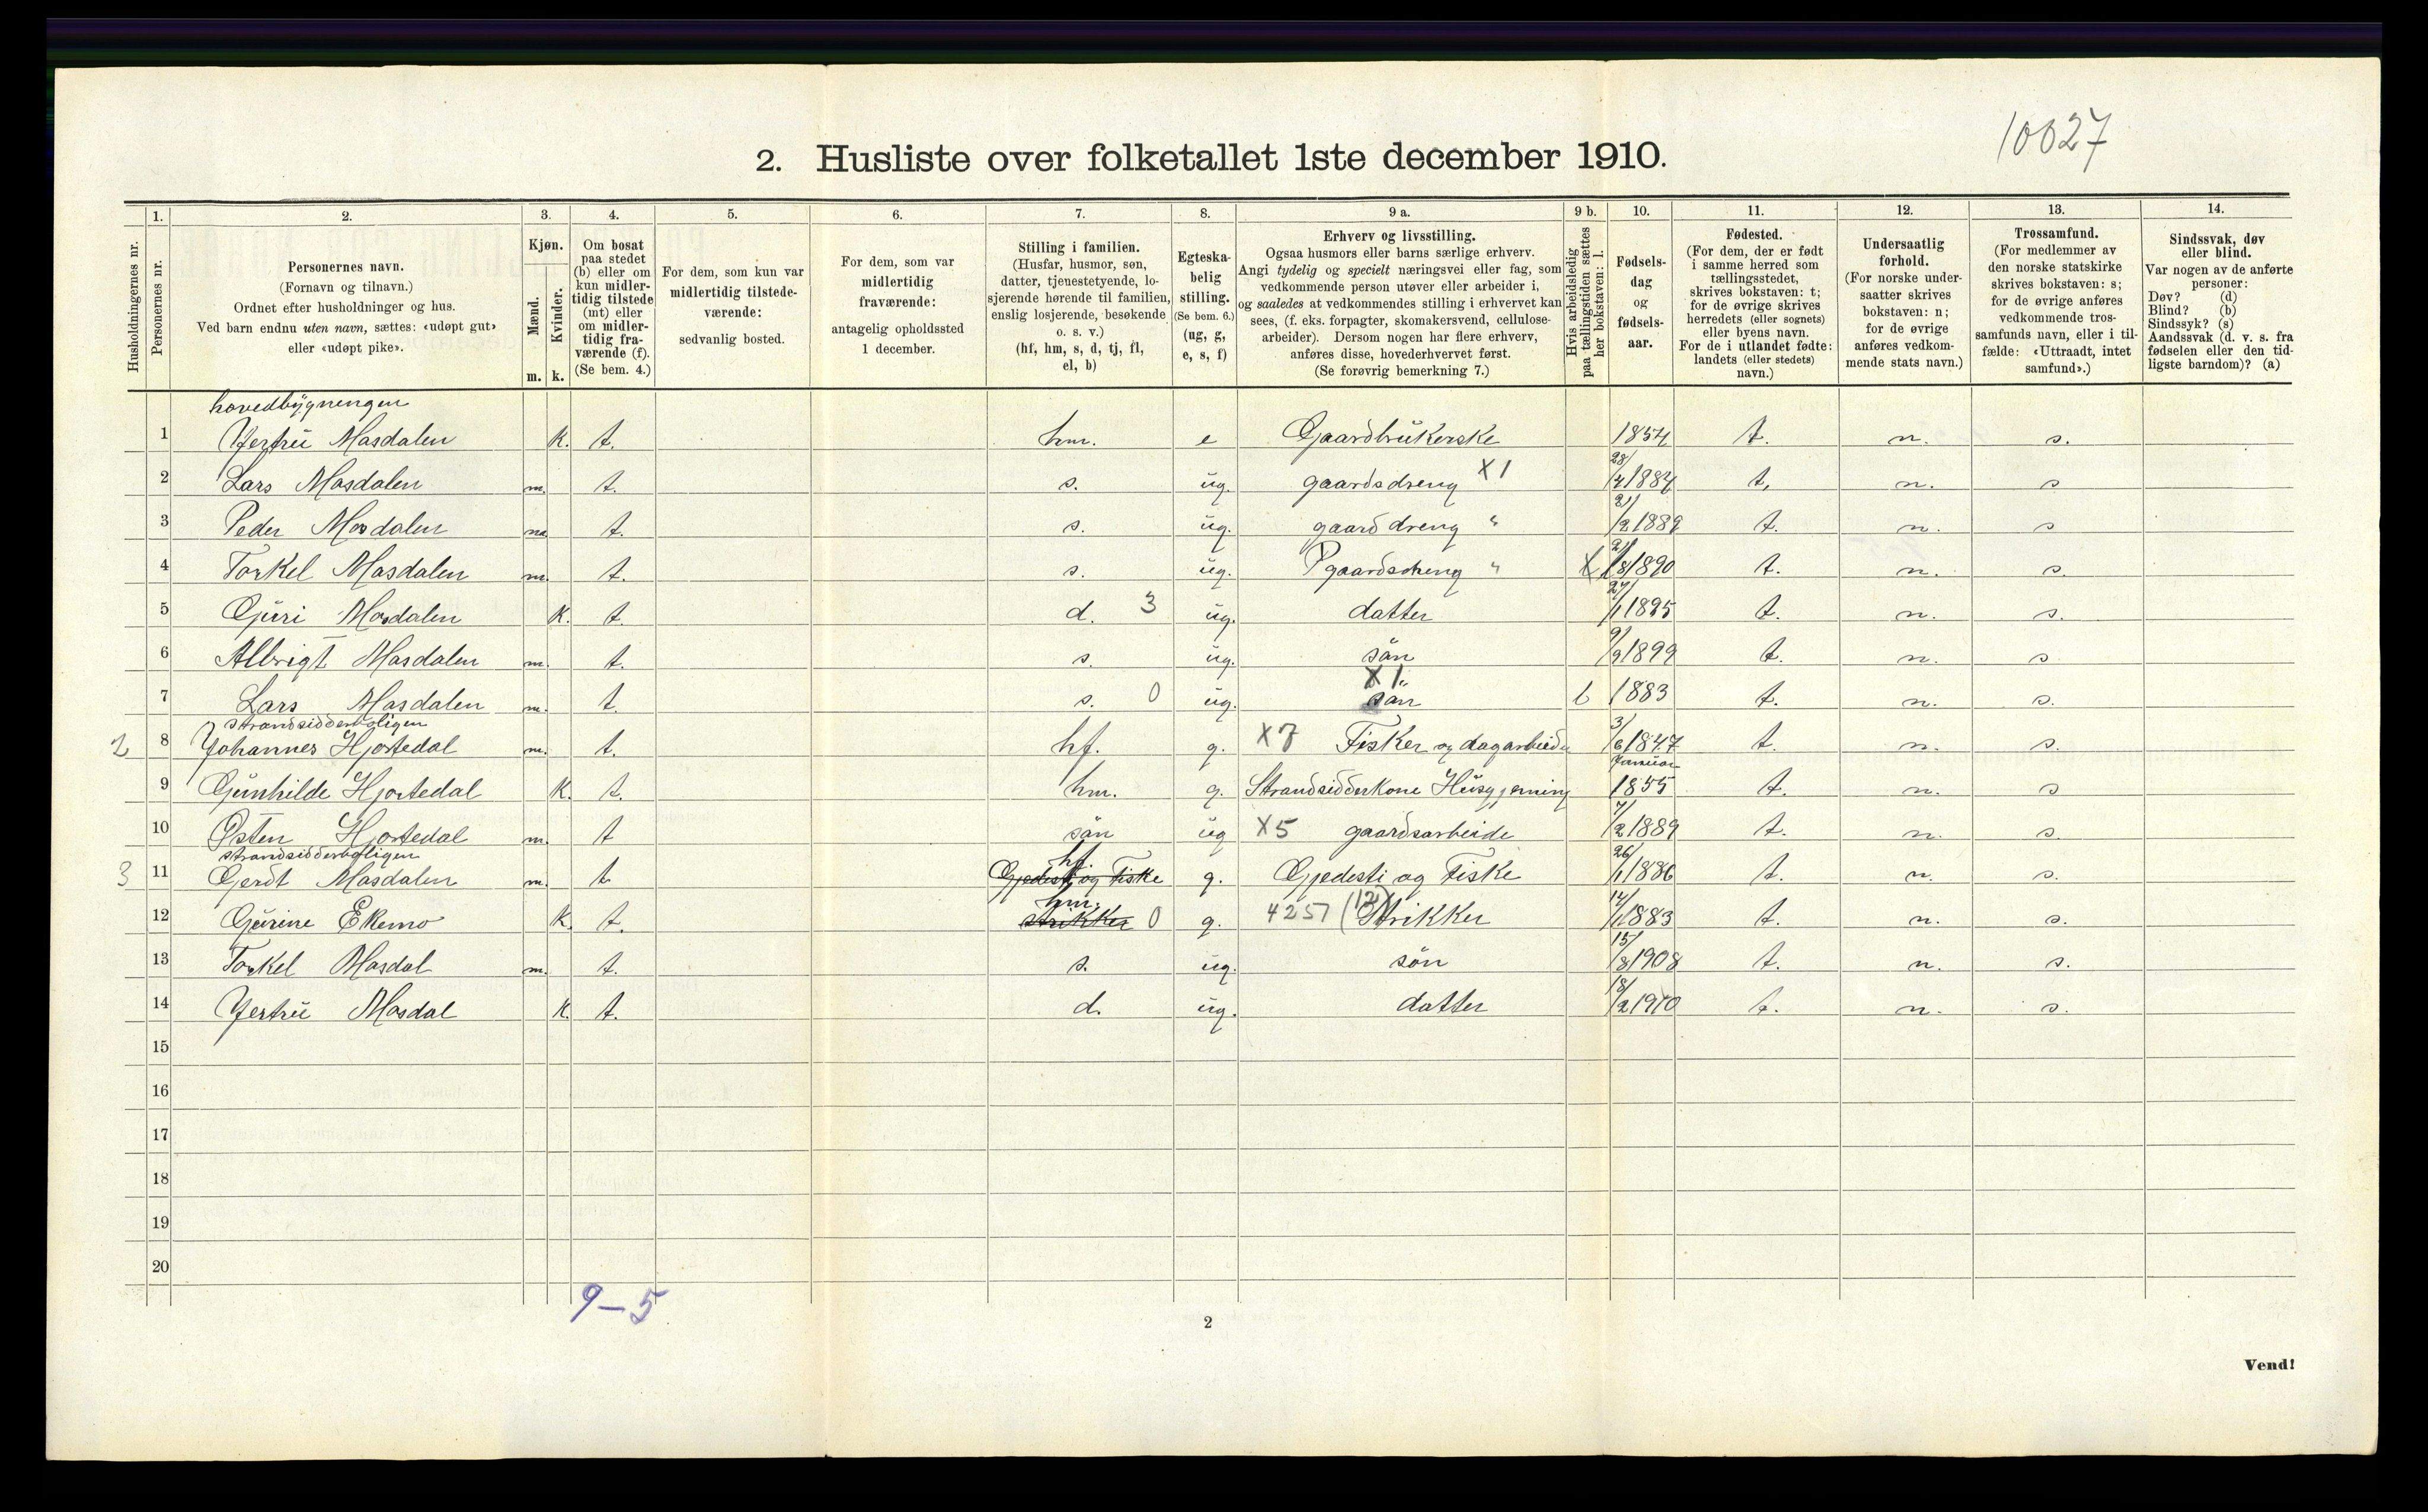 10027
2. Husliste over folketallet 1ste december 1910.
Husholdningernes nr.
1. Personernes nr.
2. Personernes navn.
(Fornavn og tilnavn.)
Ordnet efter husholdninger og hus.
Ved barn endnu uten navn, sættes: «udøpt gut»
eller «udøpt pike».
3. Kjøn.
Mænd. Kvinder.
m. k.
4. Om bosat
paa stedet
(b) eller om
kun midler-
tidig tilstede
(mt) eller
om midler-
tidig fra-
værende (f).
(Se bem. 4.)
5. For dem, som kun var
midlertidig tilstede-
værende:
sedvanlig bosted.
6. For dem, som var
midlertidig
fraværende:
antagelig opholdssted
1 december.
7. Stilling i familien.
(Husfar, husmor, søn,
datter, tjenestetyende, lo-
sjerende hørende til familien,
enslig losjerende, besøkende
o. s. v.)
(hf, hm, s, d, tj, fl,
el, b)
8. Egteska-
belig
stilling.
(Se bem. 6.)
(ug, g,
e, s, f)
9 a. Erhverv og livsstilling.
Ogsaa husmors eller barns særlige erhverv.
Angi tydelig og specielt næringsvei eller fag, som
vedkommende person utøver eller arbeider i,
og saaledes at vedkommendes stilling i erhvervet kan
sees, (f. eks. forpagter, skomakersvend, cellulose-
arbeider). Dersom nogen har flere erhverv,
anføres disse, hovederhvervet først.
(Se forøvrig bemerkning 7.)
9 b. Hvis arbeidsledig
paa tællingstiden sættes
her bokstaven: l.
10. Fødsels-
dag
og
fødsels-
aar.
11. Fødested.
(For dem, der er født
i samme herred som
tællingsstedet,
skrives bokstaven: t;
for de øvrige skrives
herredets (eller sognets)
eller byens navn.
For de i utlandet fødte:
landets (eller stedets)
navn.)
12. Undersaatlig
forhold.
(For norske under-
saatter skrives
bokstaven: n;
for de øvrige
anføres vedkom-
mende stats navn.)
13. Trossamfund.
(For medlemmer av
den norske statskirke
skrives bokstaven: s;
for de øvrige anføres
vedkommende tros-
samfunds navn, eller i til-
fælde: «Uttraadt, intet
samfund».)
14. Sindssvak, døv
eller blind.
Var nogen av de anførte
personer:
Døv? (d)
Blind? (b)
Sindssyk? (s)
Aandssvak (d. v. s. fra
fødselen eller den tid-
ligste barndom)? (a)
hovedbygningen
1 Jertrü Masdalen K. t. hm. e Gaardbrukerske 1854 t. n. s.
2 Lars Masdalen m. t. s. ug. gaardsdreng X1 28/4 1884 t, n. s
3 Peder Masdalen m t. s. ug. gaarddreng " 21/2 1889 t. n. s
4 Torkel Masdalen m. t. s. ug. gaardsdreng " X 2/8 1890 t. n. s.
5 Guri Masdalen K. t. d. 3 ug. datter 27/1 1895 t. n. s.
6 Albrigt Masdalen m. t. s. ug. sön 9/9 1899 t. n. s
7 Lars Masdalen m. t. s. 0 ug. X1" sön l 1883 t. n. s.
strandsidderboligen
2 8 Johannes Hjortedal m. t. hf. g. X7 Fisker og dagarbeider 3/6 1847 t. n. s.
9 Gunhilde Hjortedal K. t. hm. g. Strandsidderkone Husgjerning Januar 1855 t. n. s
10 Østen Hjortedal m. t sön ug X5 gaardsarbeide 7/2 1889 t. n. s.
strandsidderboligen
3 11 Gerdt Masdalen m. t Gjedesti og Fiske hf. g. Gjedesti og Fiske 26/1 1886 t. n. s.
12 Gurine Ekemo K. t. strikker hm. 0 g. 4257 (12) Strikker 14/1 1883 t. n. s.
13 Torkel Masdal m. t. s. ug. sön 15/8 1908 t. n. s.
14 Jertrü Masdal K. t. d. ug. datter 18/2 1910 t. n. s.
15
16
17
18
19
20
9–5
2
Vend!